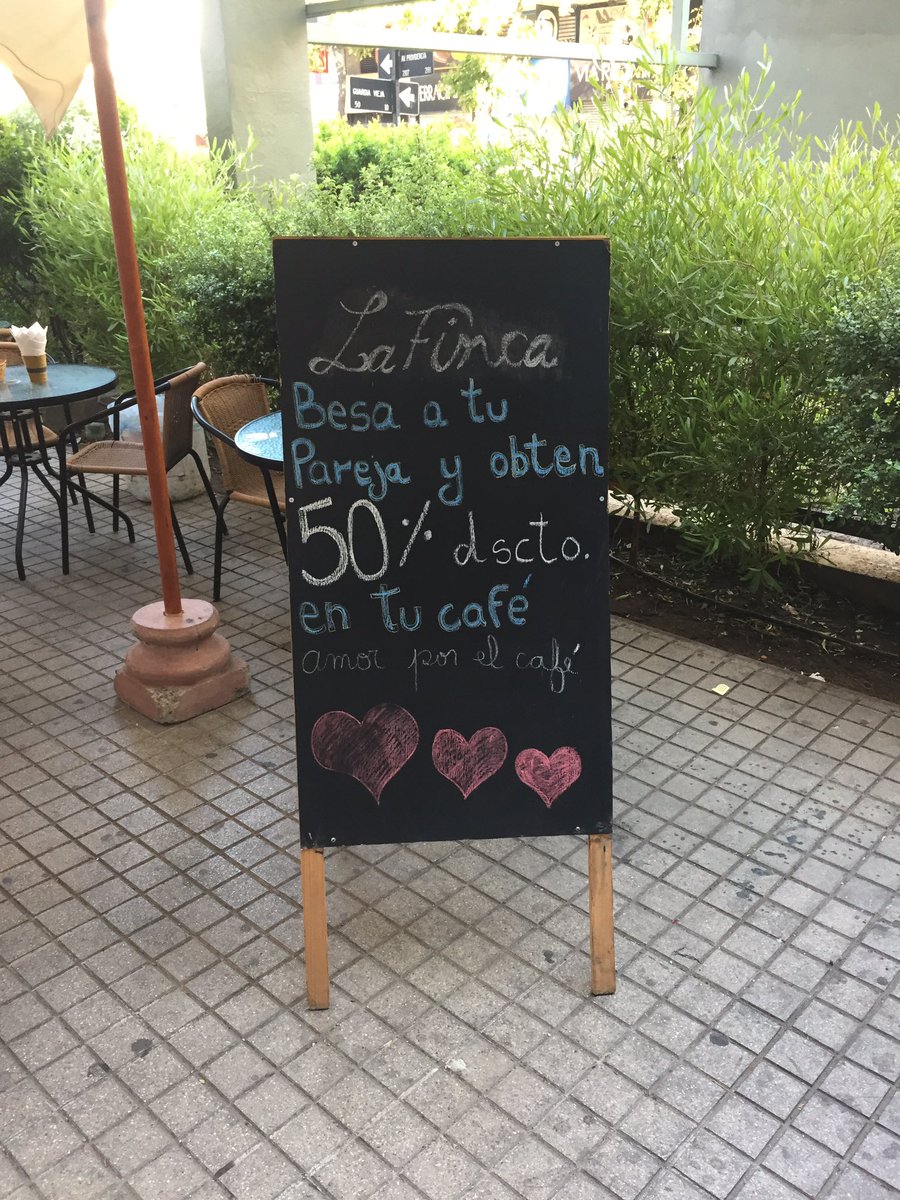 AV PROVIDENCIA
GUARDIA VIEJA
50
La Finca
Besa a tu
Pareja y obten
50% dscto.
en tu café
amor por el café